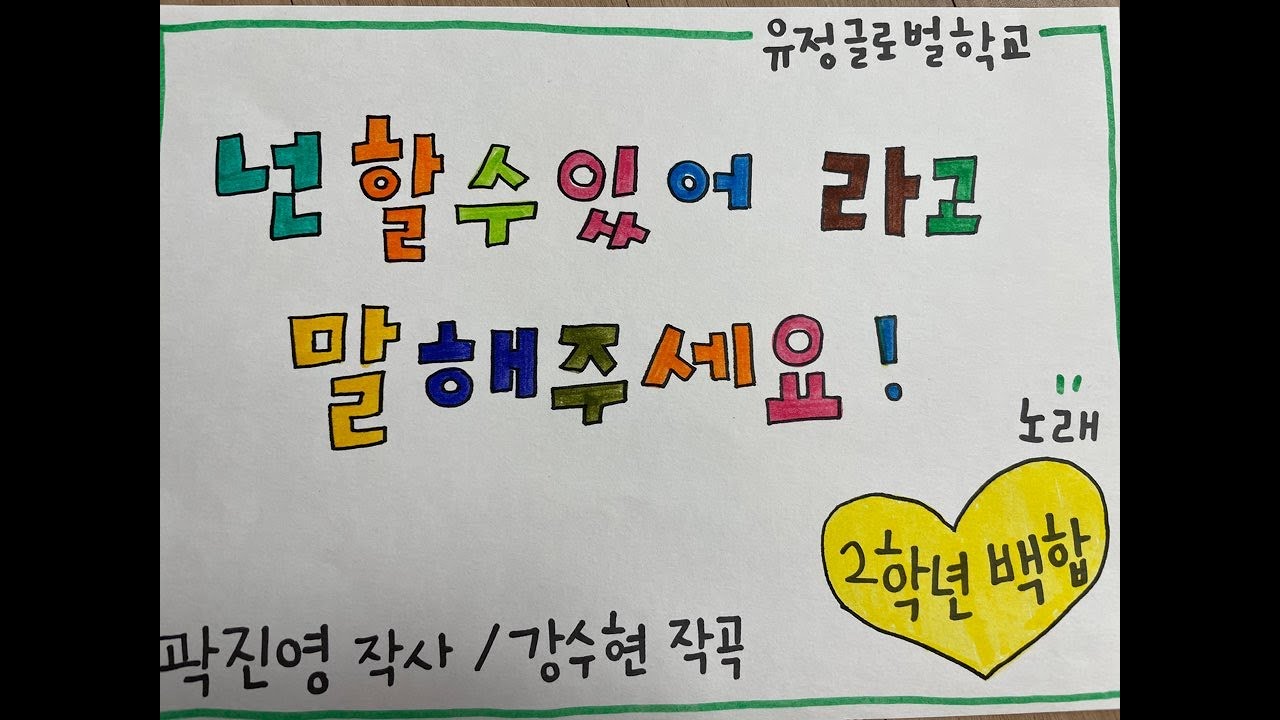 유정글로벌학교
넌할수있어 라고
말해주세요!
노래
2학년 백합
곽진영 작사 / 강수현 작곡